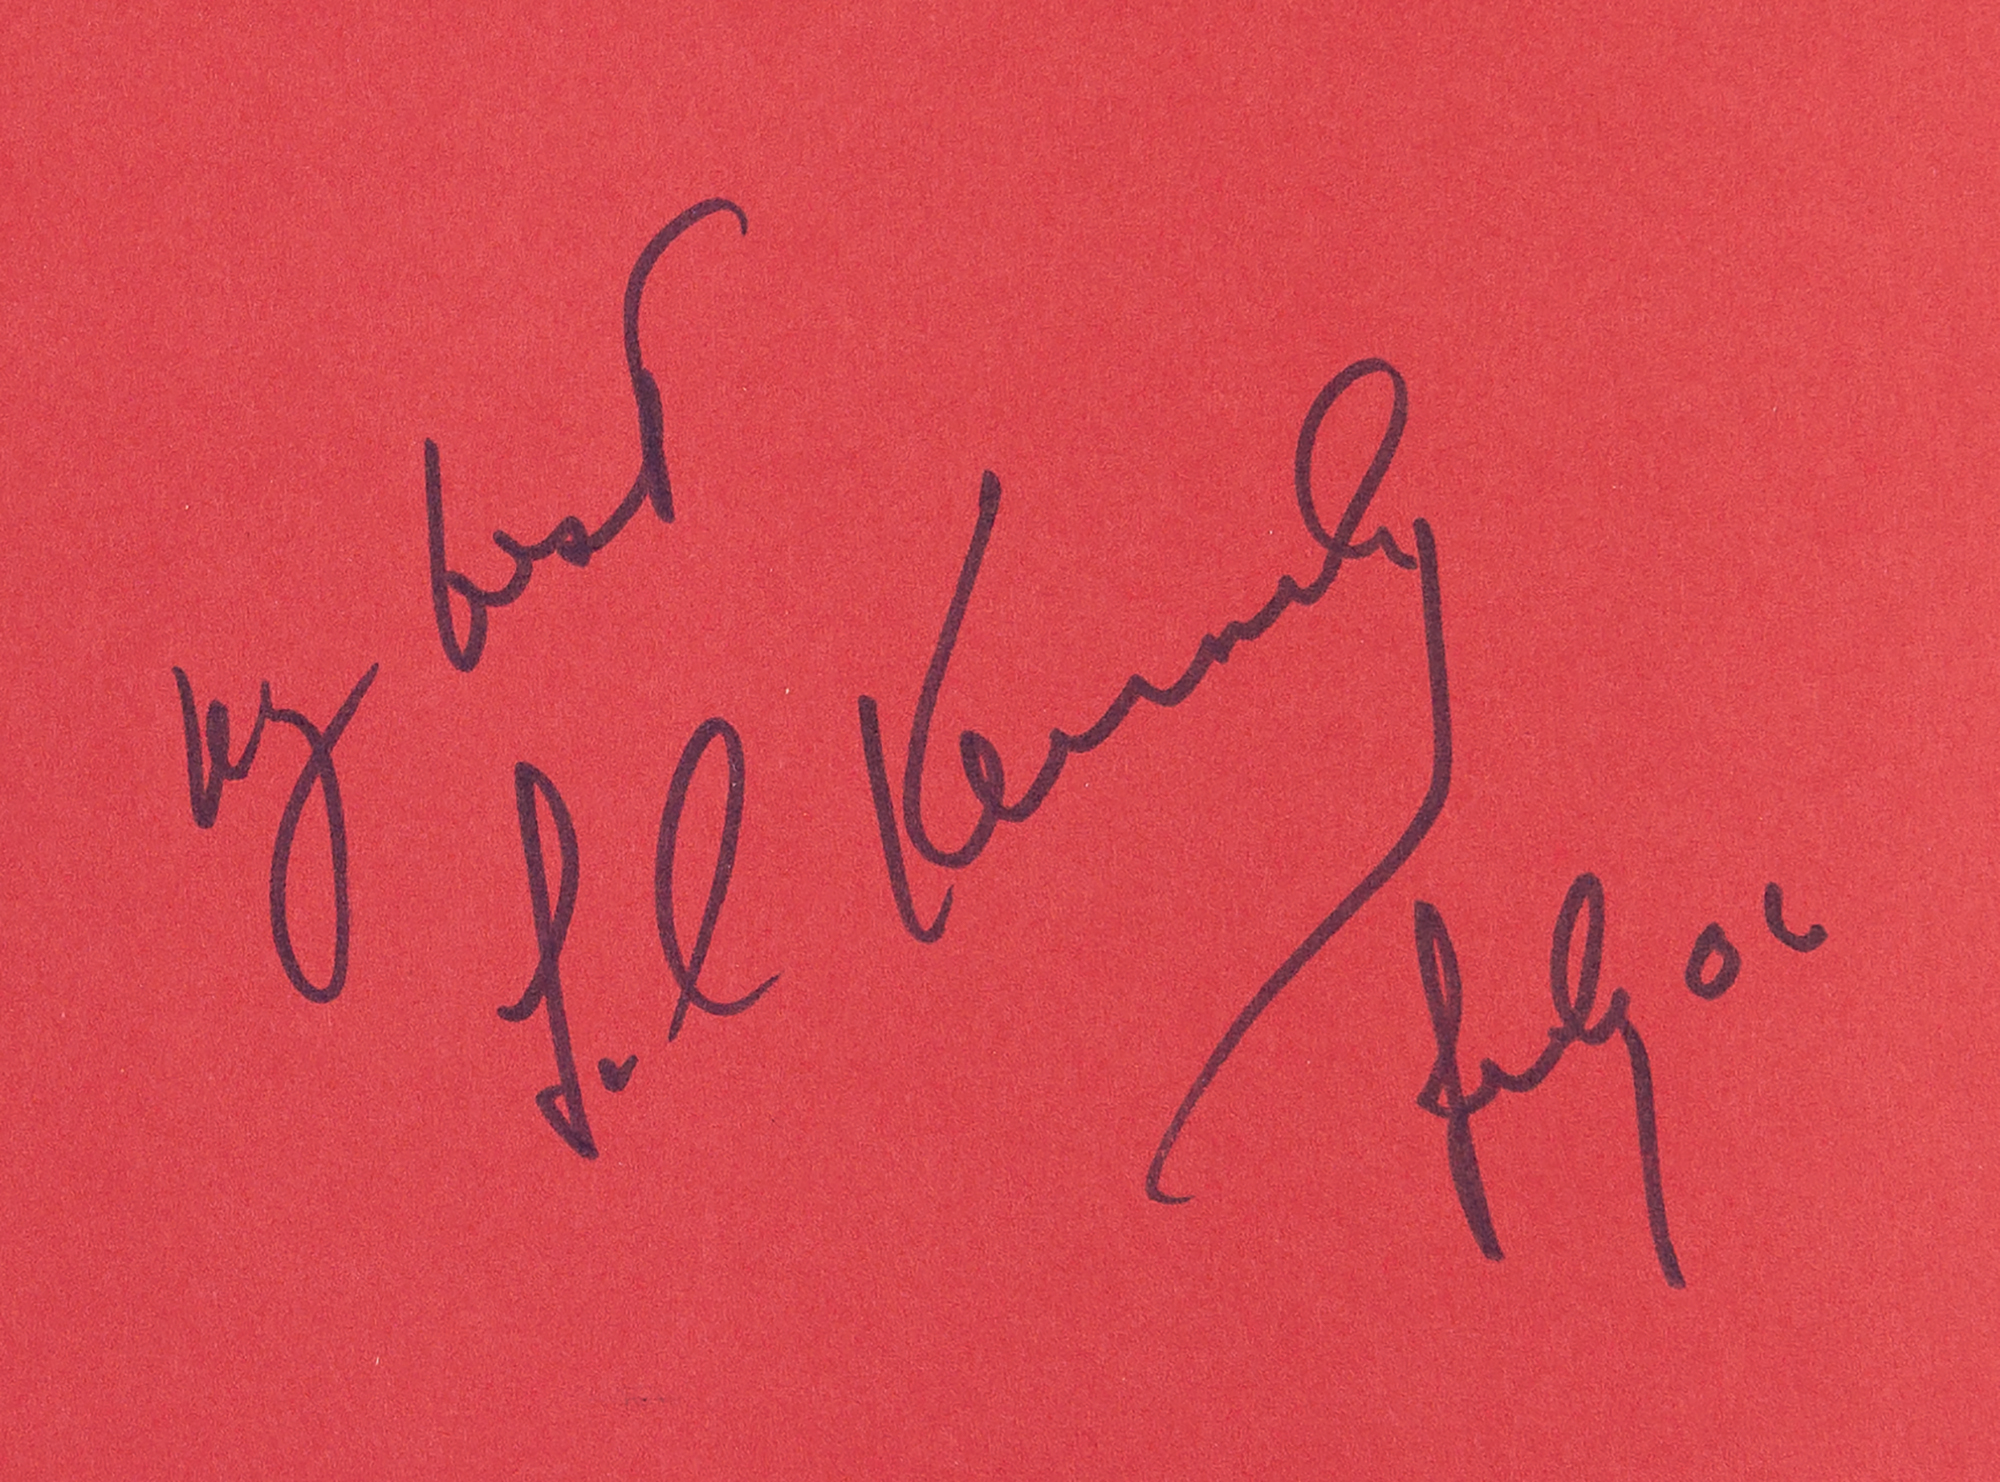 My best
Ted Kennedy
July 06